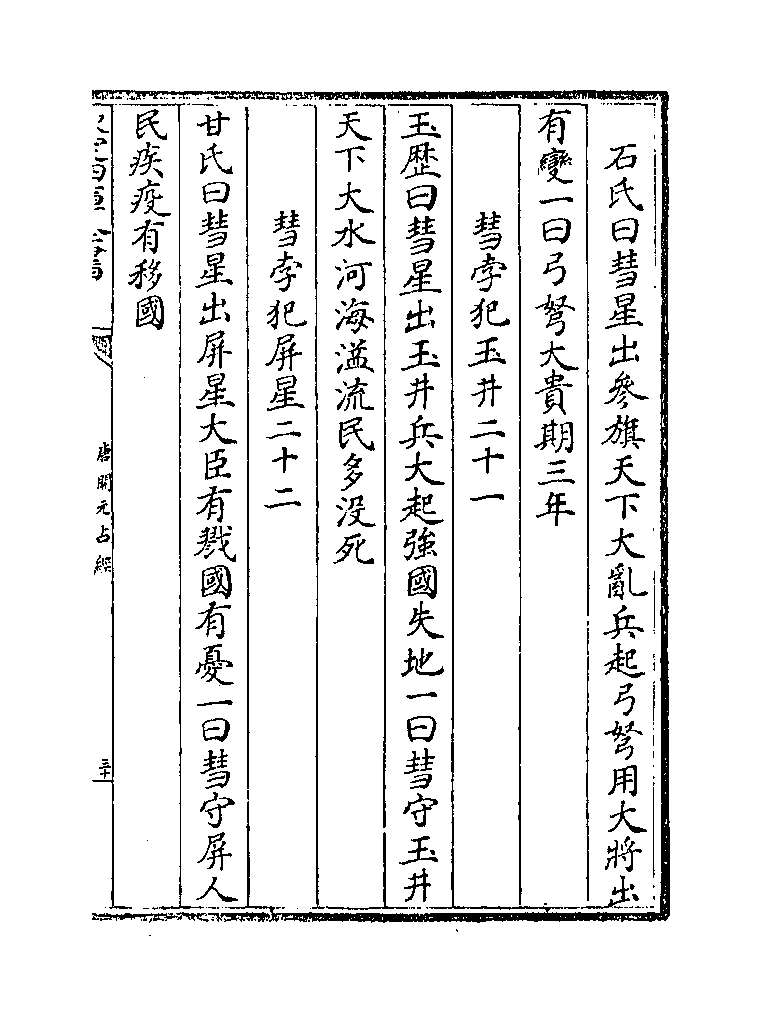 石氏曰彗星出參旗天下大亂兵起弓弩用大將出
有變一曰弓弩大貴期三年
彗孛犯玉井二十一
玉歴曰彗星出玉井兵大起強國失地一曰彗守玉井
天下大水河海溢流民多没死
彗孛犯屏星二十二
甘氏曰彗星出屏星大臣有戮國有憂一曰彗守屏人
民疾疫有移國
唐開元占經
三十